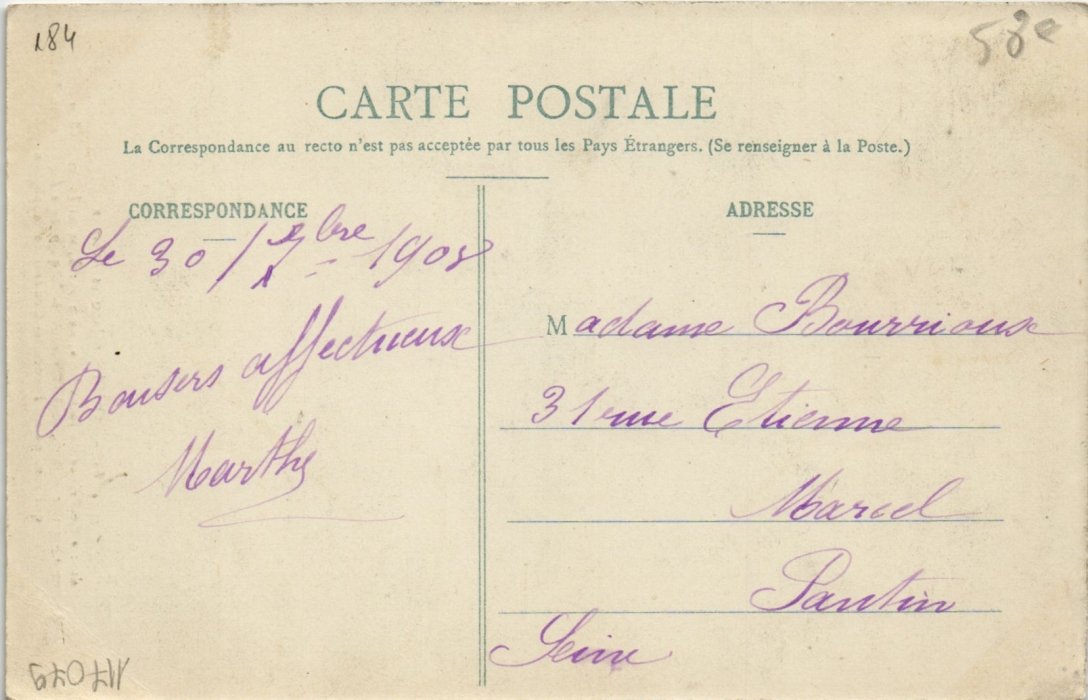 184
58e
CARTE POSTALE
La Correspondance au recto n'est pas acceptée par tous les Pays Étrangers. (Se renseigner à la Poste.)
CORRESPONDANCE
Le 30 / Xbre 1908
Baisers affectueux
Marthe
ADRESSE
Madame Bourrioux
31 rue Etienne
Marcel
Pantin
Seine
117079